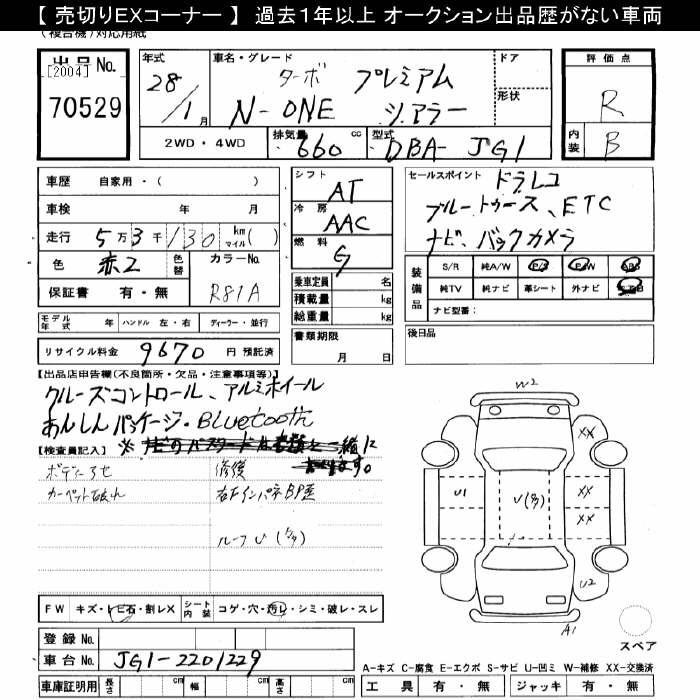 【 売切りEXコーナー 】 過去１年以上 オークション出品歴がない車両
(複合機)対応用紙
出品 No.
[2004]
70529
年式
28/1 月
車名・グレード
ターボ プレミアム
N-ONE ツアラー
ドア
形状
評価点
R
内装 B
2WD ・ 4WD
排気量 660 cc
型式 DBA- JG1
車歴 自家用・( )
車検 年 月
走行 5万3千130 km マイル ( )
色 赤2 色替 カラーNo.
R81A
保証書 有・無
モデル年式 年 ハンドル 左・右 ディーラー・並行
リサイクル料金 9670 円 預託済
シフト AT
冷房 AAC
燃料 G
乗車定員 名
積載量 kg
総重量 kg
書類期限
月 日
セールスポイント ドラレコ
ブルートゥース、ETC
ナビ、バックカメラ
装備品
S/R 純A/W P/S P/W ABS
純TV 純ナビ 革シート 外ナビ
ナビ型番:
後日品
【出品店申告欄(不良箇所・欠品・注意事項等)】
クルーズコントロール、アルミホイール
あんしんパッケージ・Bluetooth
【検査員記入】
カーペット破れ
修復
ルーフU(多)
W2
XX
U1
U(多)
XX
XX
U2
A1
スペア
FW キズ・トビ石・割レX シート内装 コゲ・穴・汚レ・シミ・破レ・スレ
登録 No.
車台 No. JG1-2201229
車庫証明用 長さ cm 幅 cm 高さ cm
A-キズ C-腐食 E-エクボ S-サビ U-凹ミ W-補修 XX-交換済
工具 有・無 ジャッキ 有・無